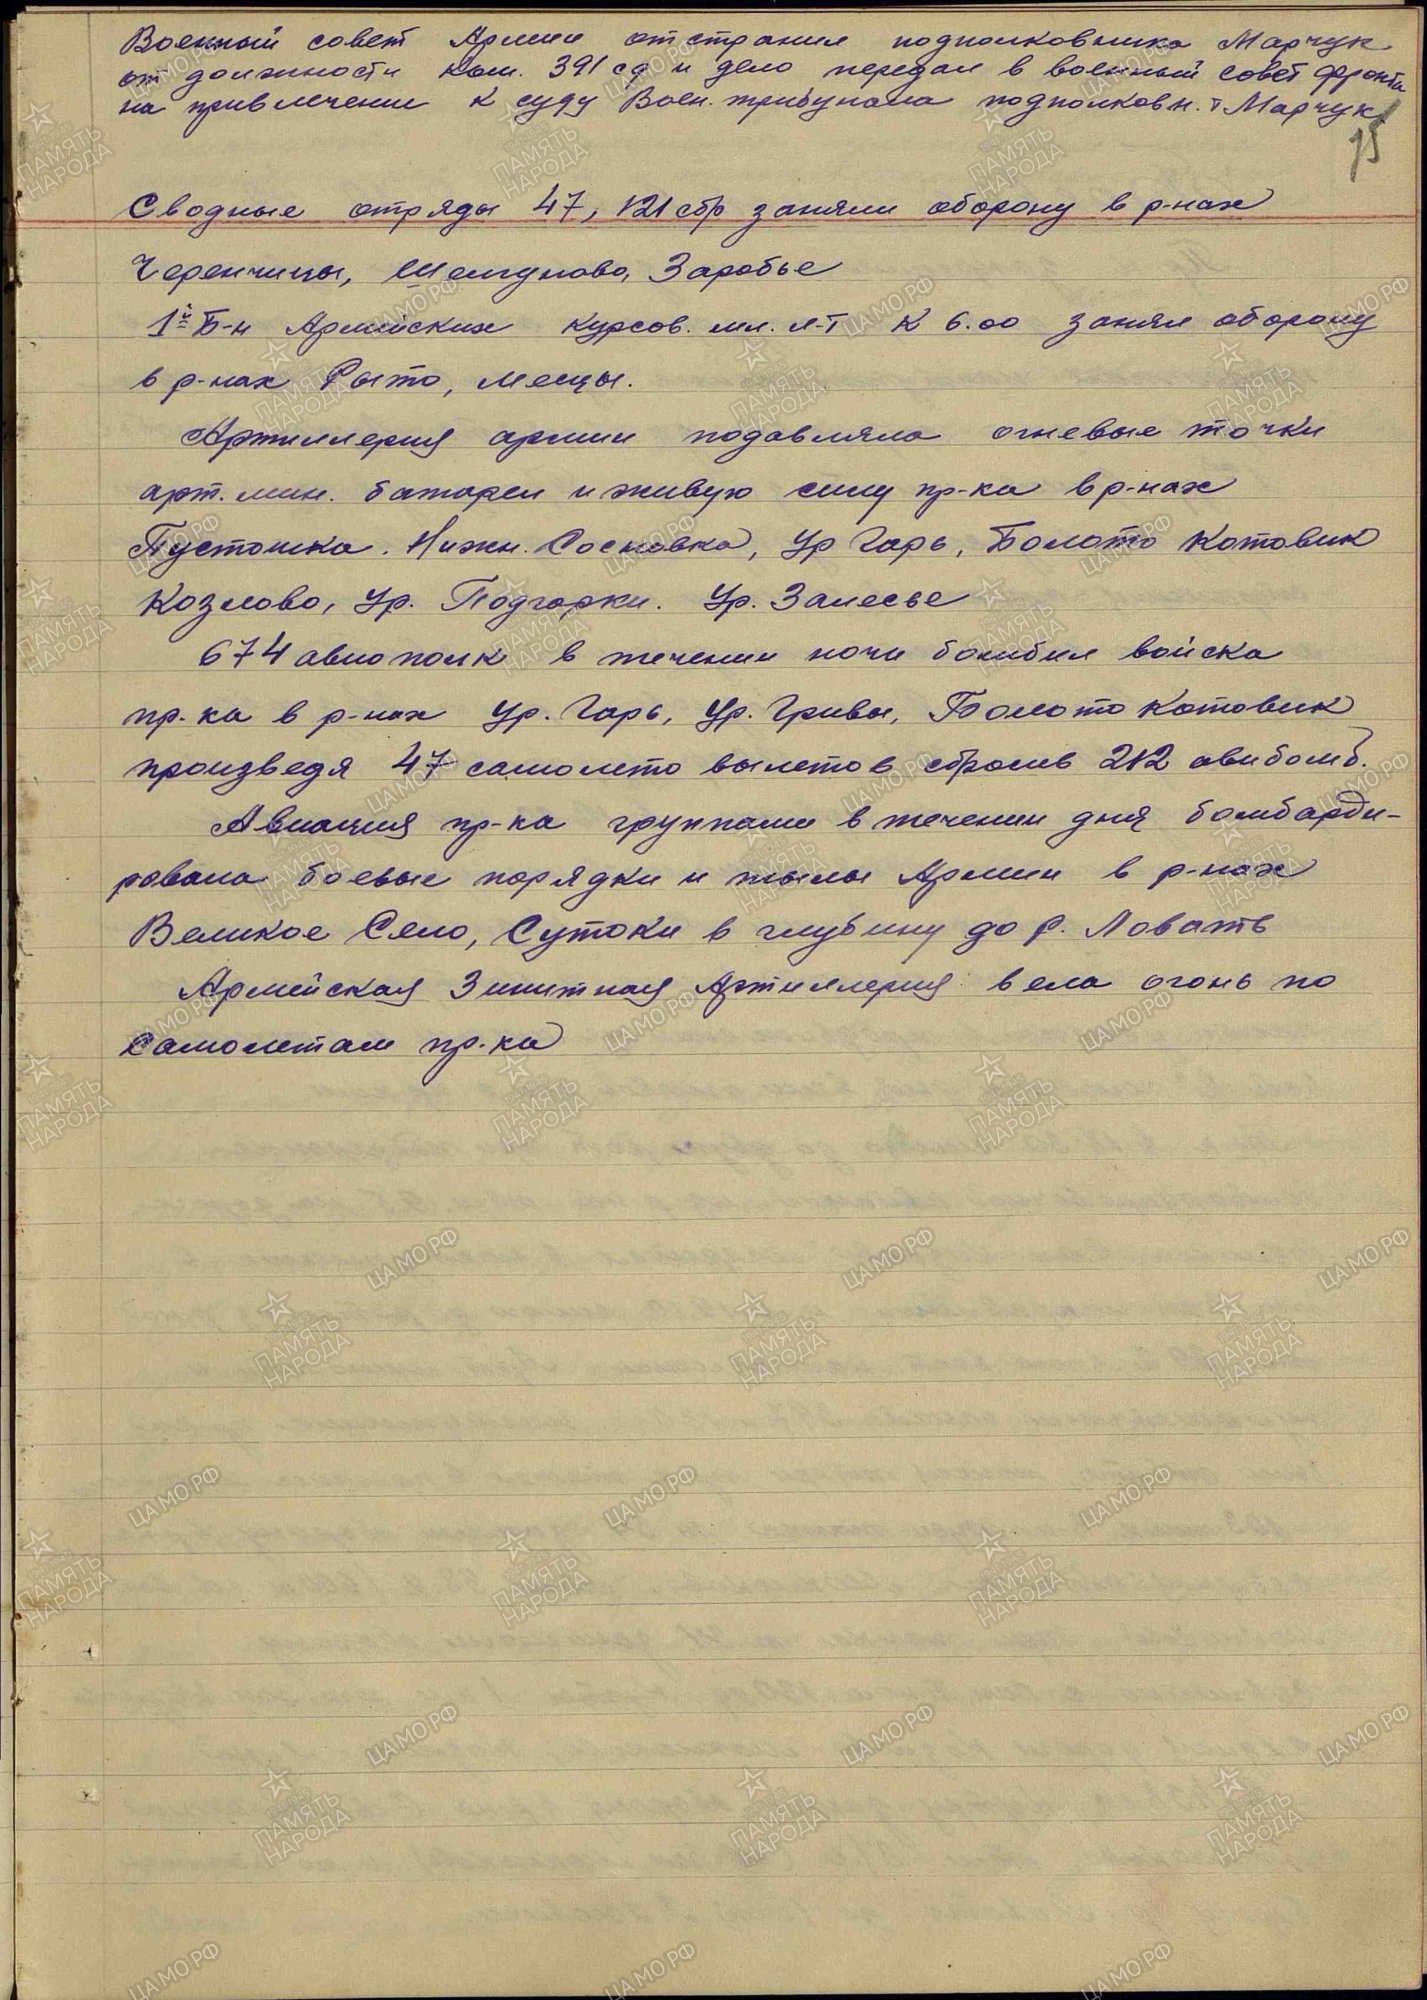 Военный совет Армии отстранил подполковника Марчук
от должности ком. 391 сд и дело передал в военный совет фронта
на привлечение к суду Воен. трибунала подполковн. т Марчук
15
Сводные отряды 47, 121 сбр заняли оборону в р-нах
Черенчицы, Шелгуново, Заробье
1й Б-н Армейских курсов. мл. л-т к 6.00 занял оборону
в р-нах Рыто, Мелцы.
Артиллерия армии подавляла огневые точки
арт. мин. батареи и живую силу пр-ка в р-нах
Пустошка. Нижн. Сосновка, Ур Гарь, Болото Котовик
Козлово, Ур. Подгорки. Ур. Залесье
674 авиополк в течении ночи бомбил войска
пр-ка в р-нах Ур. Гарь, Ур. Гривы, Болото Котовик
произведя 47 самолето вылетов сбросив 212 авибомб.
Авиация пр-ка группами в течении дня бомбарди-
ровала боевые порядки и тылы Армии в р-нах
Великое Село, Сутоки в глубину до р. Ловать
Армейская Зинитная Артиллерия вела огонь по
самолетам пр-ка
ПАМЯТЬ НАРОДА
ЦАМО.РФ